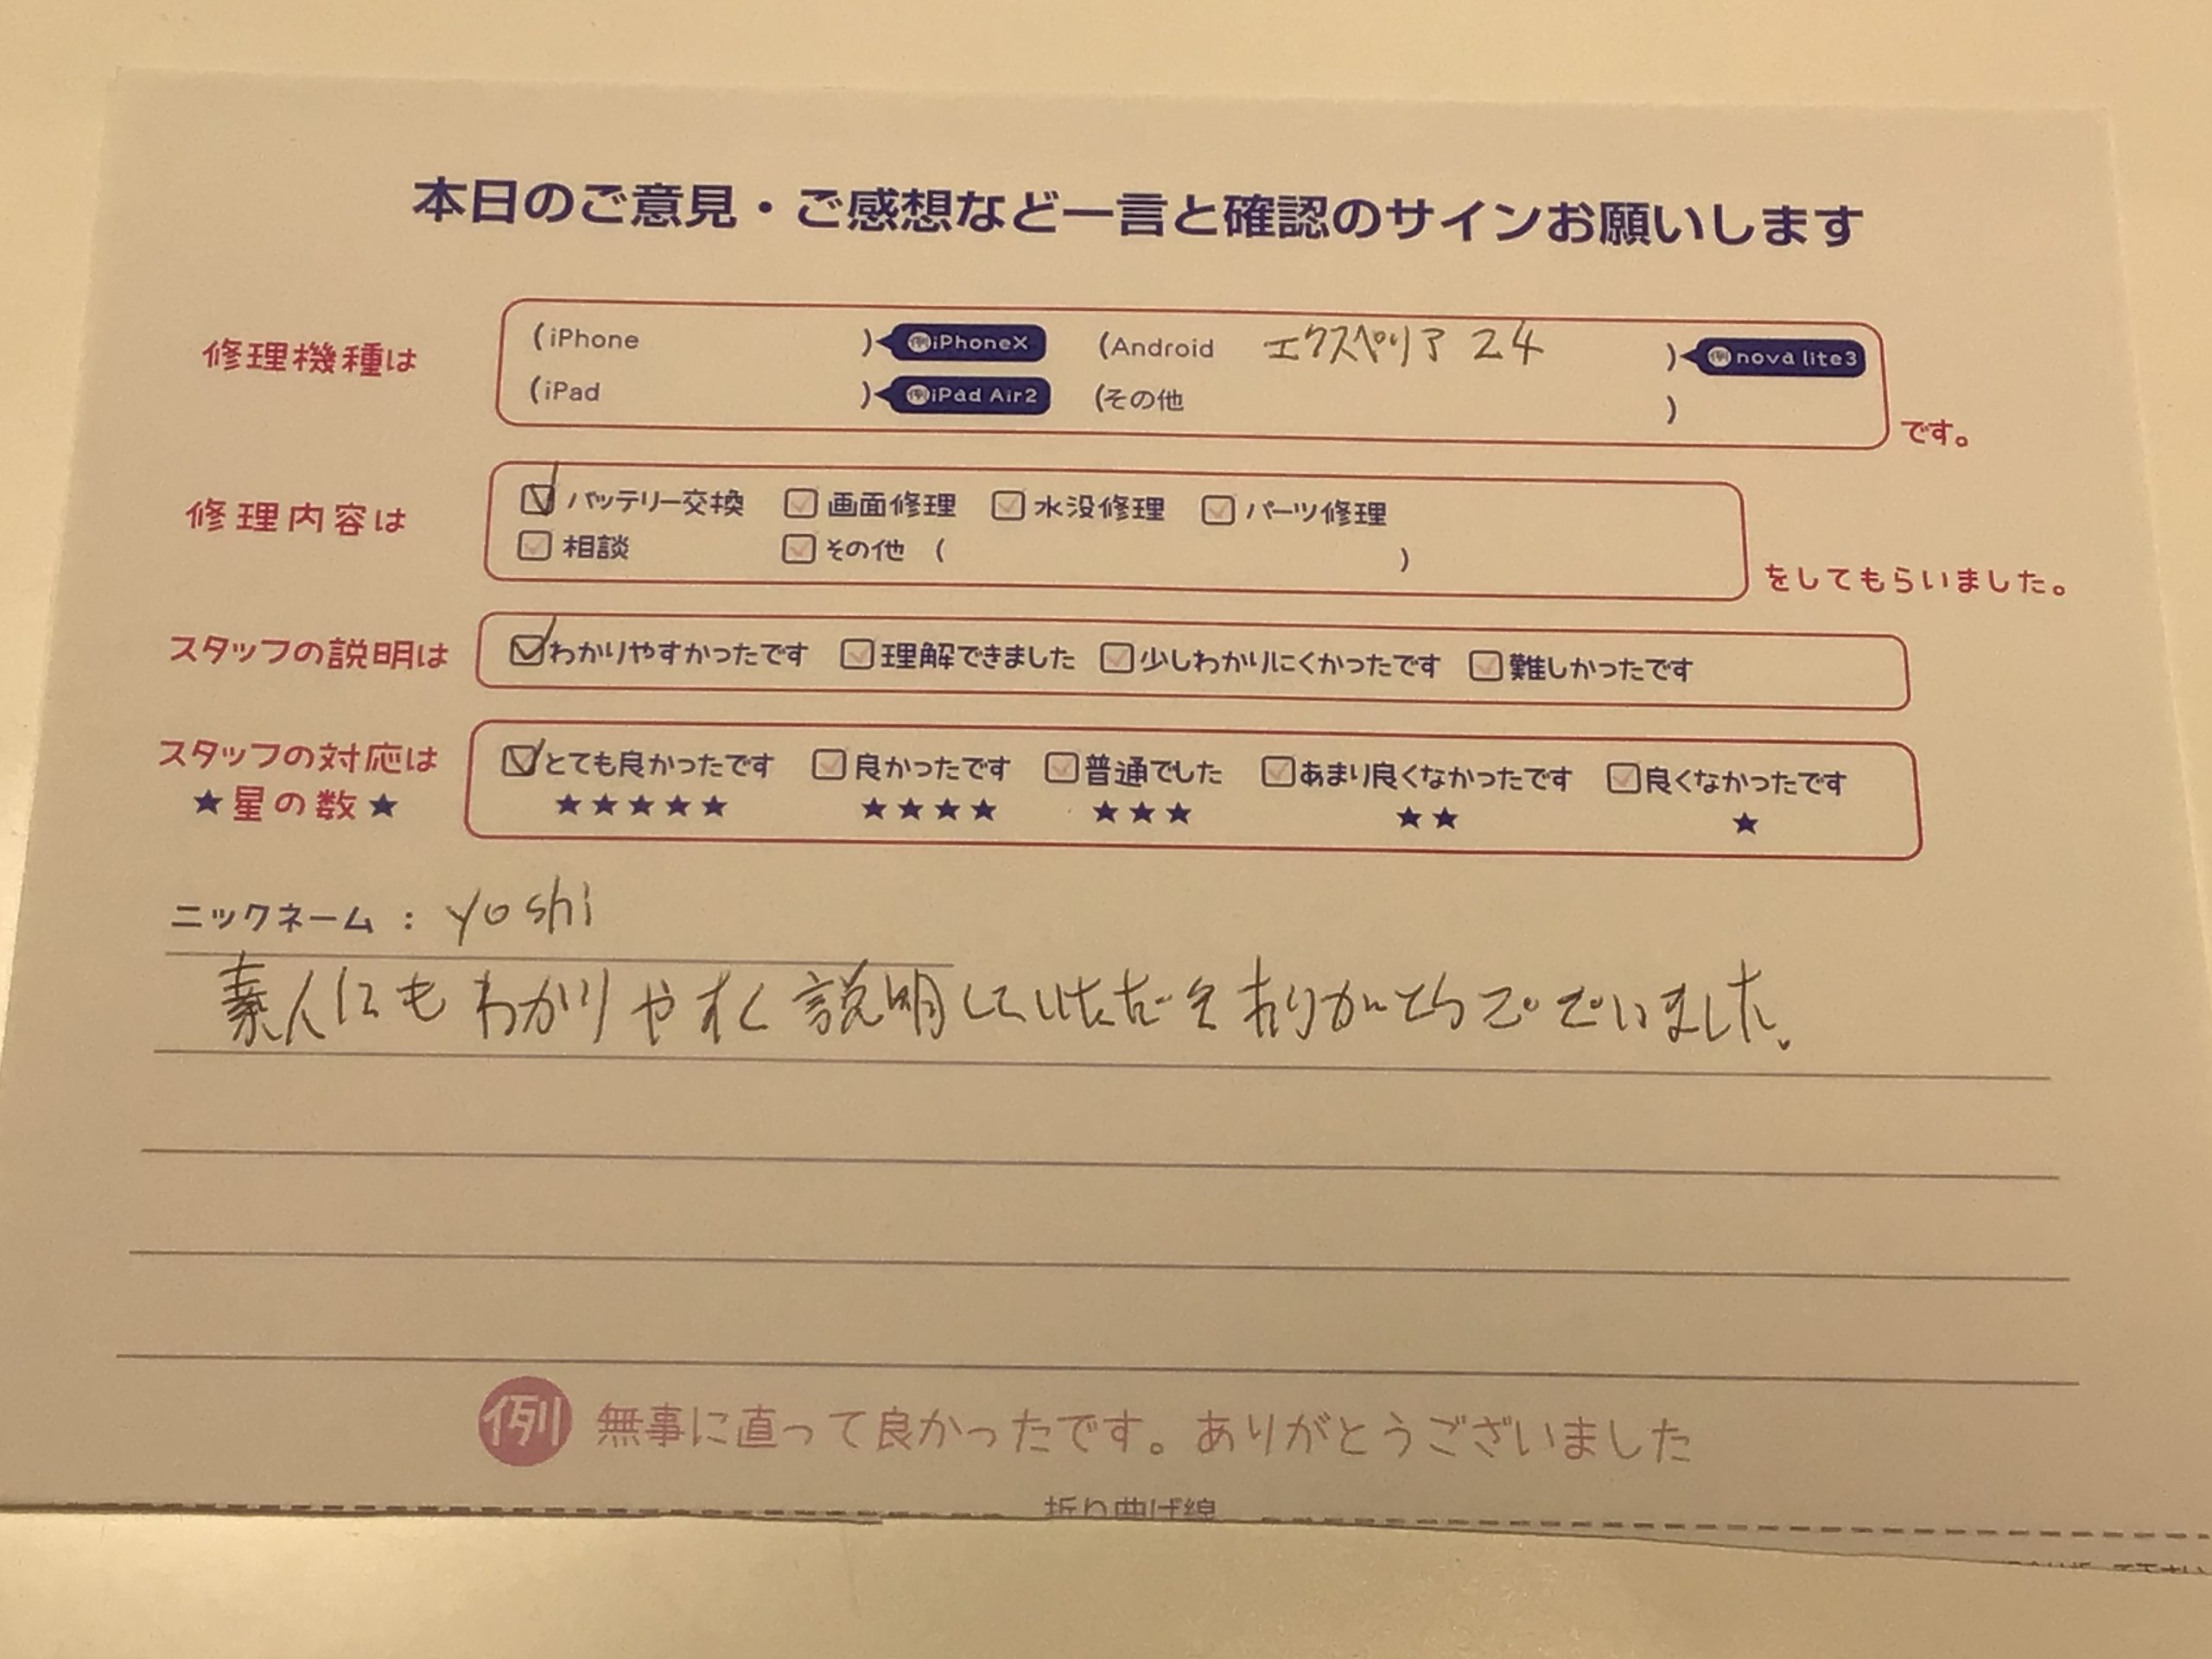 本日のご意見・ご感想など一言と確認のサインお願いします
修理機種は (iPhone ) 例iPhoneX (Android エクスペリア Z4 ) 例nova lite3
(iPad ) 例iPad Air2 (その他 ) です。
修理内容は バッテリー交換 画面修理 水没修理 パーツ修理
相談 その他 ( ) をしてもらいました。
スタッフの説明は わかりやすかったです 理解できました 少しわかりにくかったです 難しかったです
スタッフの対応は とても良かったです 良かったです 普通でした あまり良くなかったです 良くなかったです
★星の数★ ★★★★★ ★★★★ ★★★ ★★ ★
ニックネーム : yoshi
素人にもわかりやすく説明していただきありがとうございました。
例 無事に直って良かったです。ありがとうございました
折り曲げ線